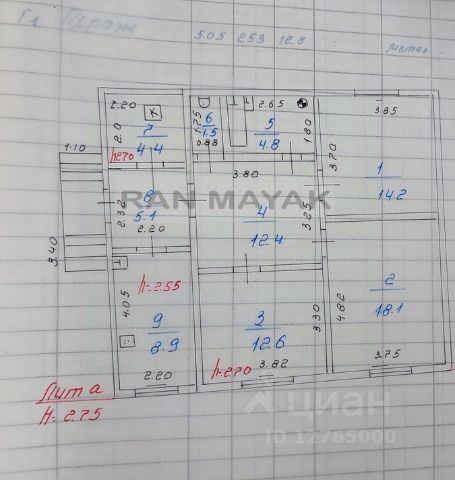 Г1 Гараж
5.05 2.53 12.8 - метал
2.20
2.0
7
4.4
h=2.70
1.75
6
1.5
0.88
2.65
5
4.8
1.80
3.85
3.70
1
14.2
1.10
3.40
2.32
8
5.1
2.20
RAN MAYAK
3.80
4
12.4
3.25
4.05
h=2.55
9
8.9
2.20
3
12.6
3.30
h=2.70
3.82
4.82
2
18.1
3.75
Лит а
H=2.75
циан
ID 12765000